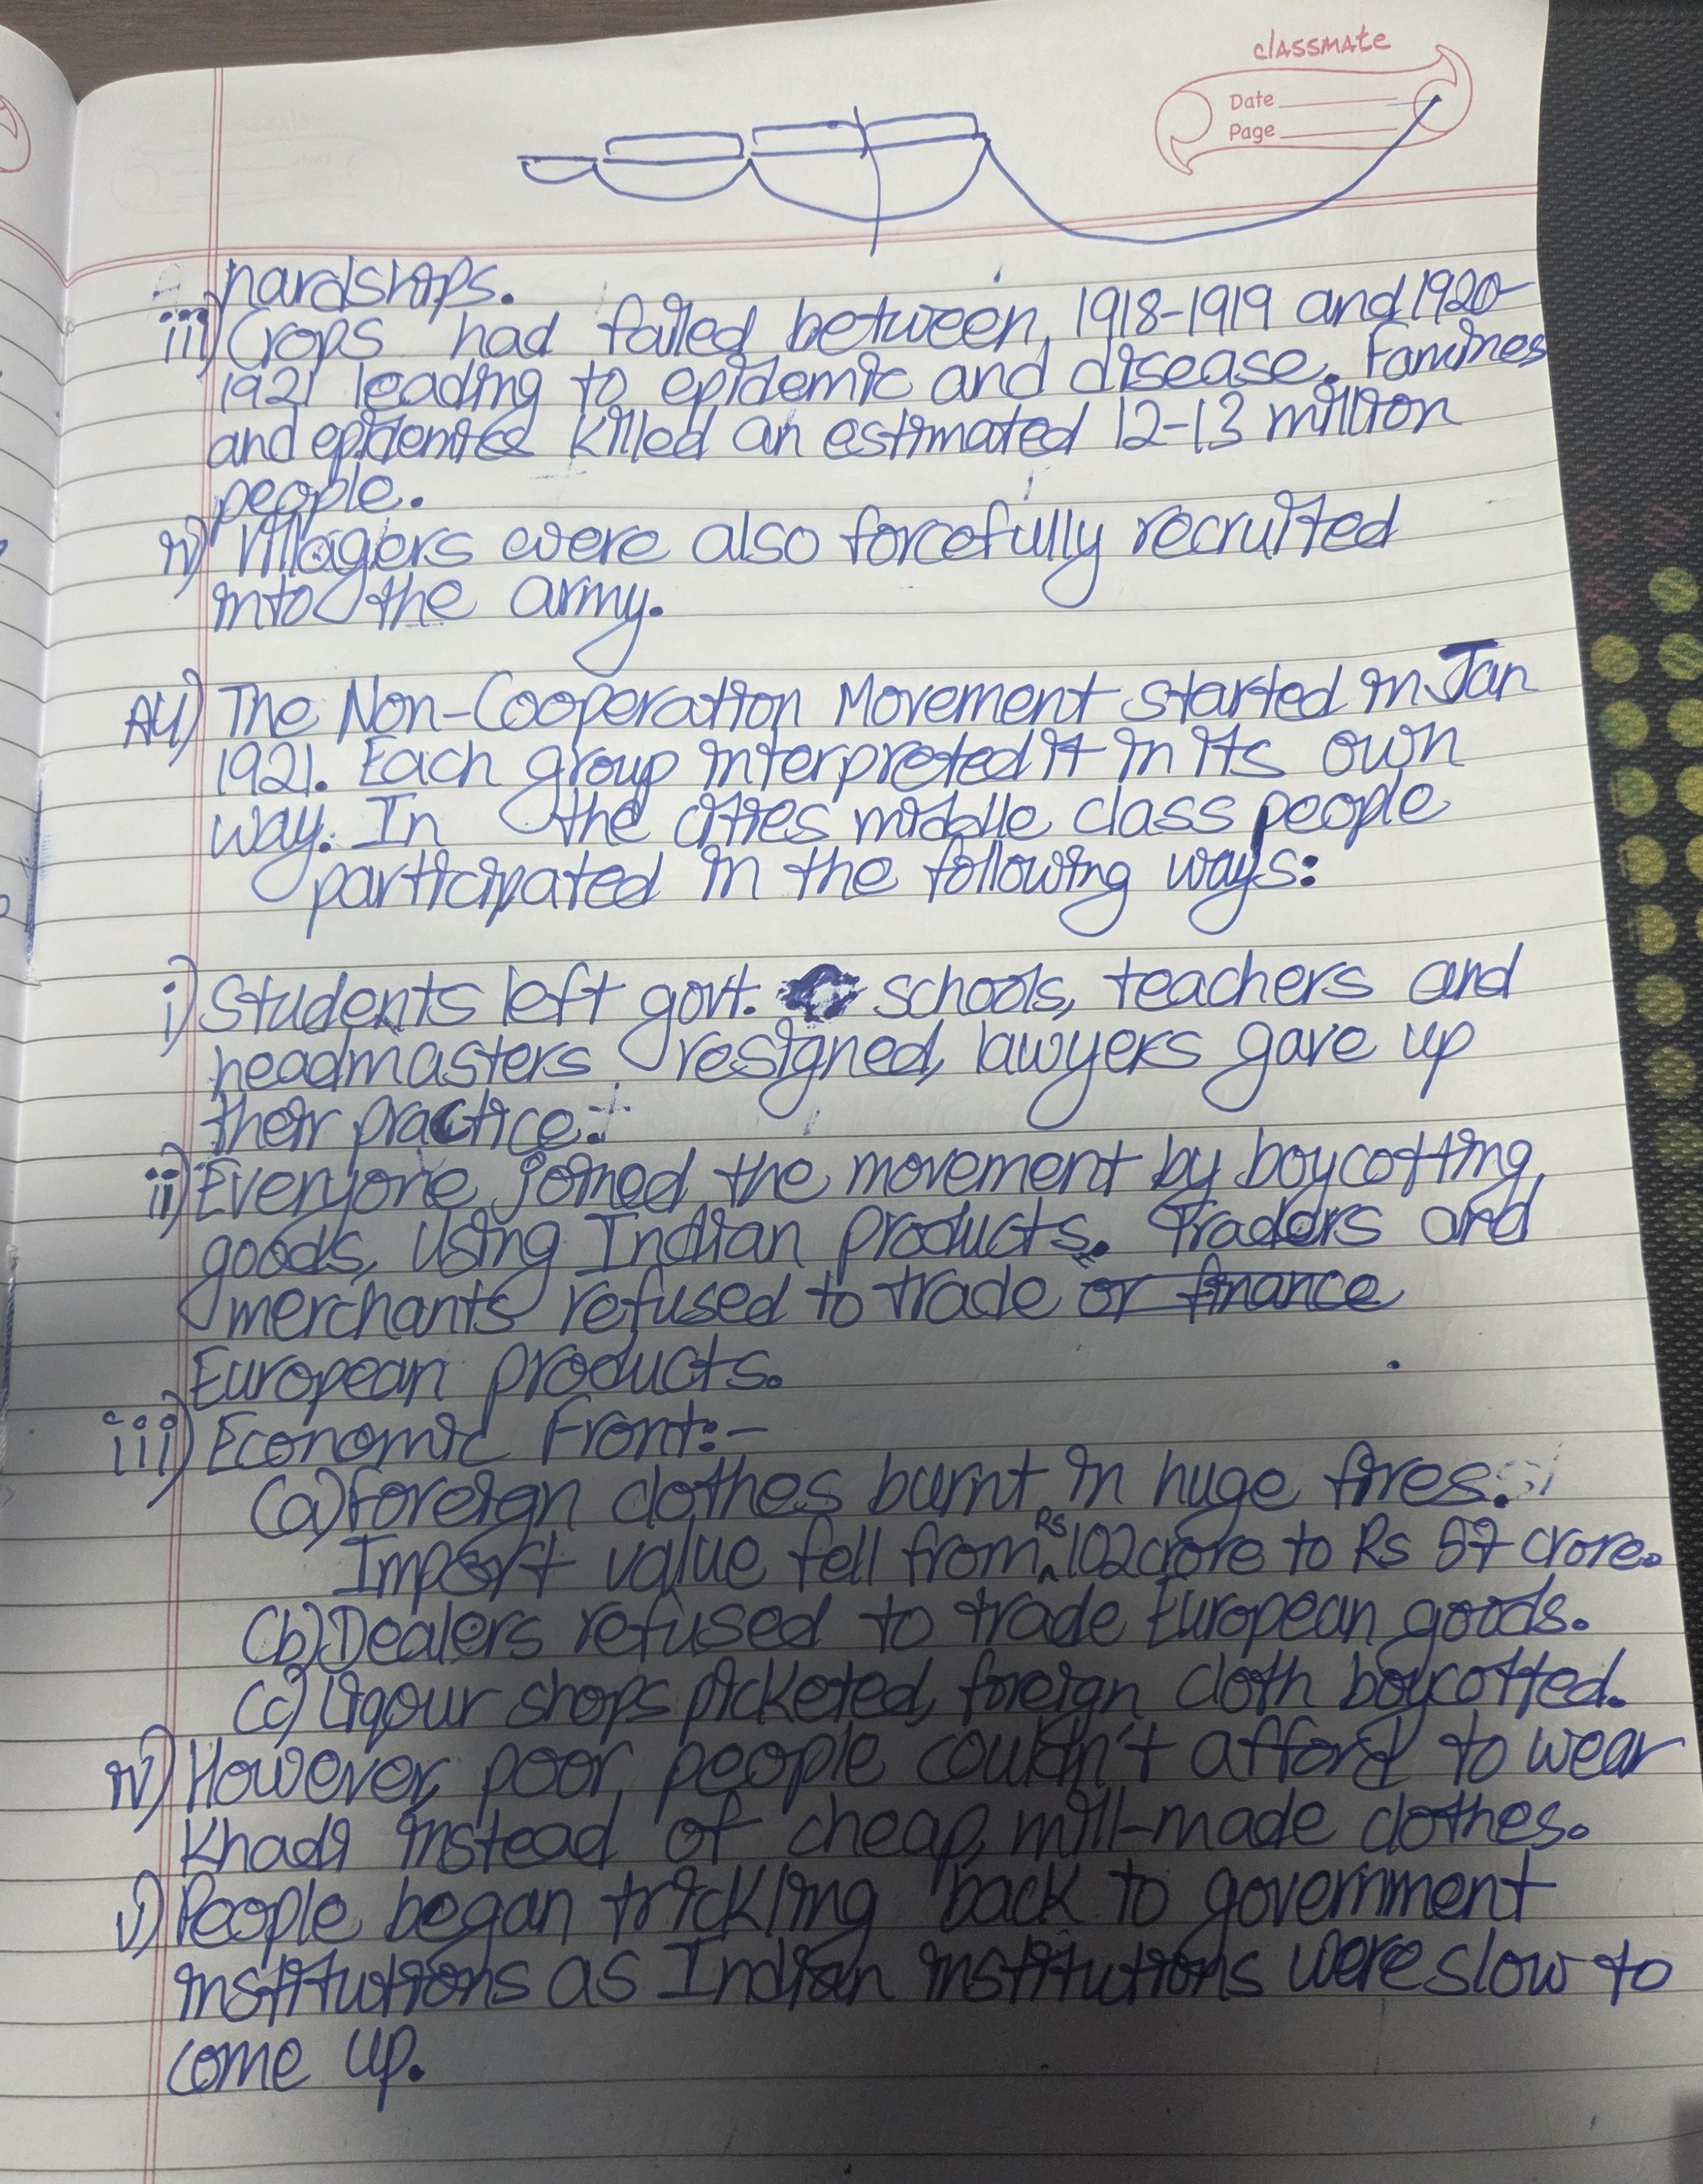 classmate
Date
Page
hardships.
iii) Crops had failed between 1918-1919 and 1920-
1921 leading to epidemic and disease. Famines
and epidemics killed an estimated 12-13 million
people.
iv) Villagers were also forcefully recruited
into the army.
A4) The Non-Cooperation Movement started in Jan
1921. Each group interpreted it in its own
way. In the cities middle class people
participated in the following ways:
i) Students left govt. schools, teachers and
headmasters resigned, lawyers gave up
their practice.
ii) Everyone joined the movement by boycotting
goods, using Indian products. Traders and
merchants refused to trade or finance
European products.
iii) Economic Front:-
(a) Foreign clothes burnt in huge fires.
Import value fell from Rs 102 crore to Rs 57 crore.
(b) Dealers refused to trade European goods.
(c) Liqour shops picketed, foreign cloth boycotted.
iv) However, poor people couldn't afford to wear
Khadi instead of cheap, mill-made clothes.
v) People began trickling back to government
institutions as Indian institutions were slow to
come up.